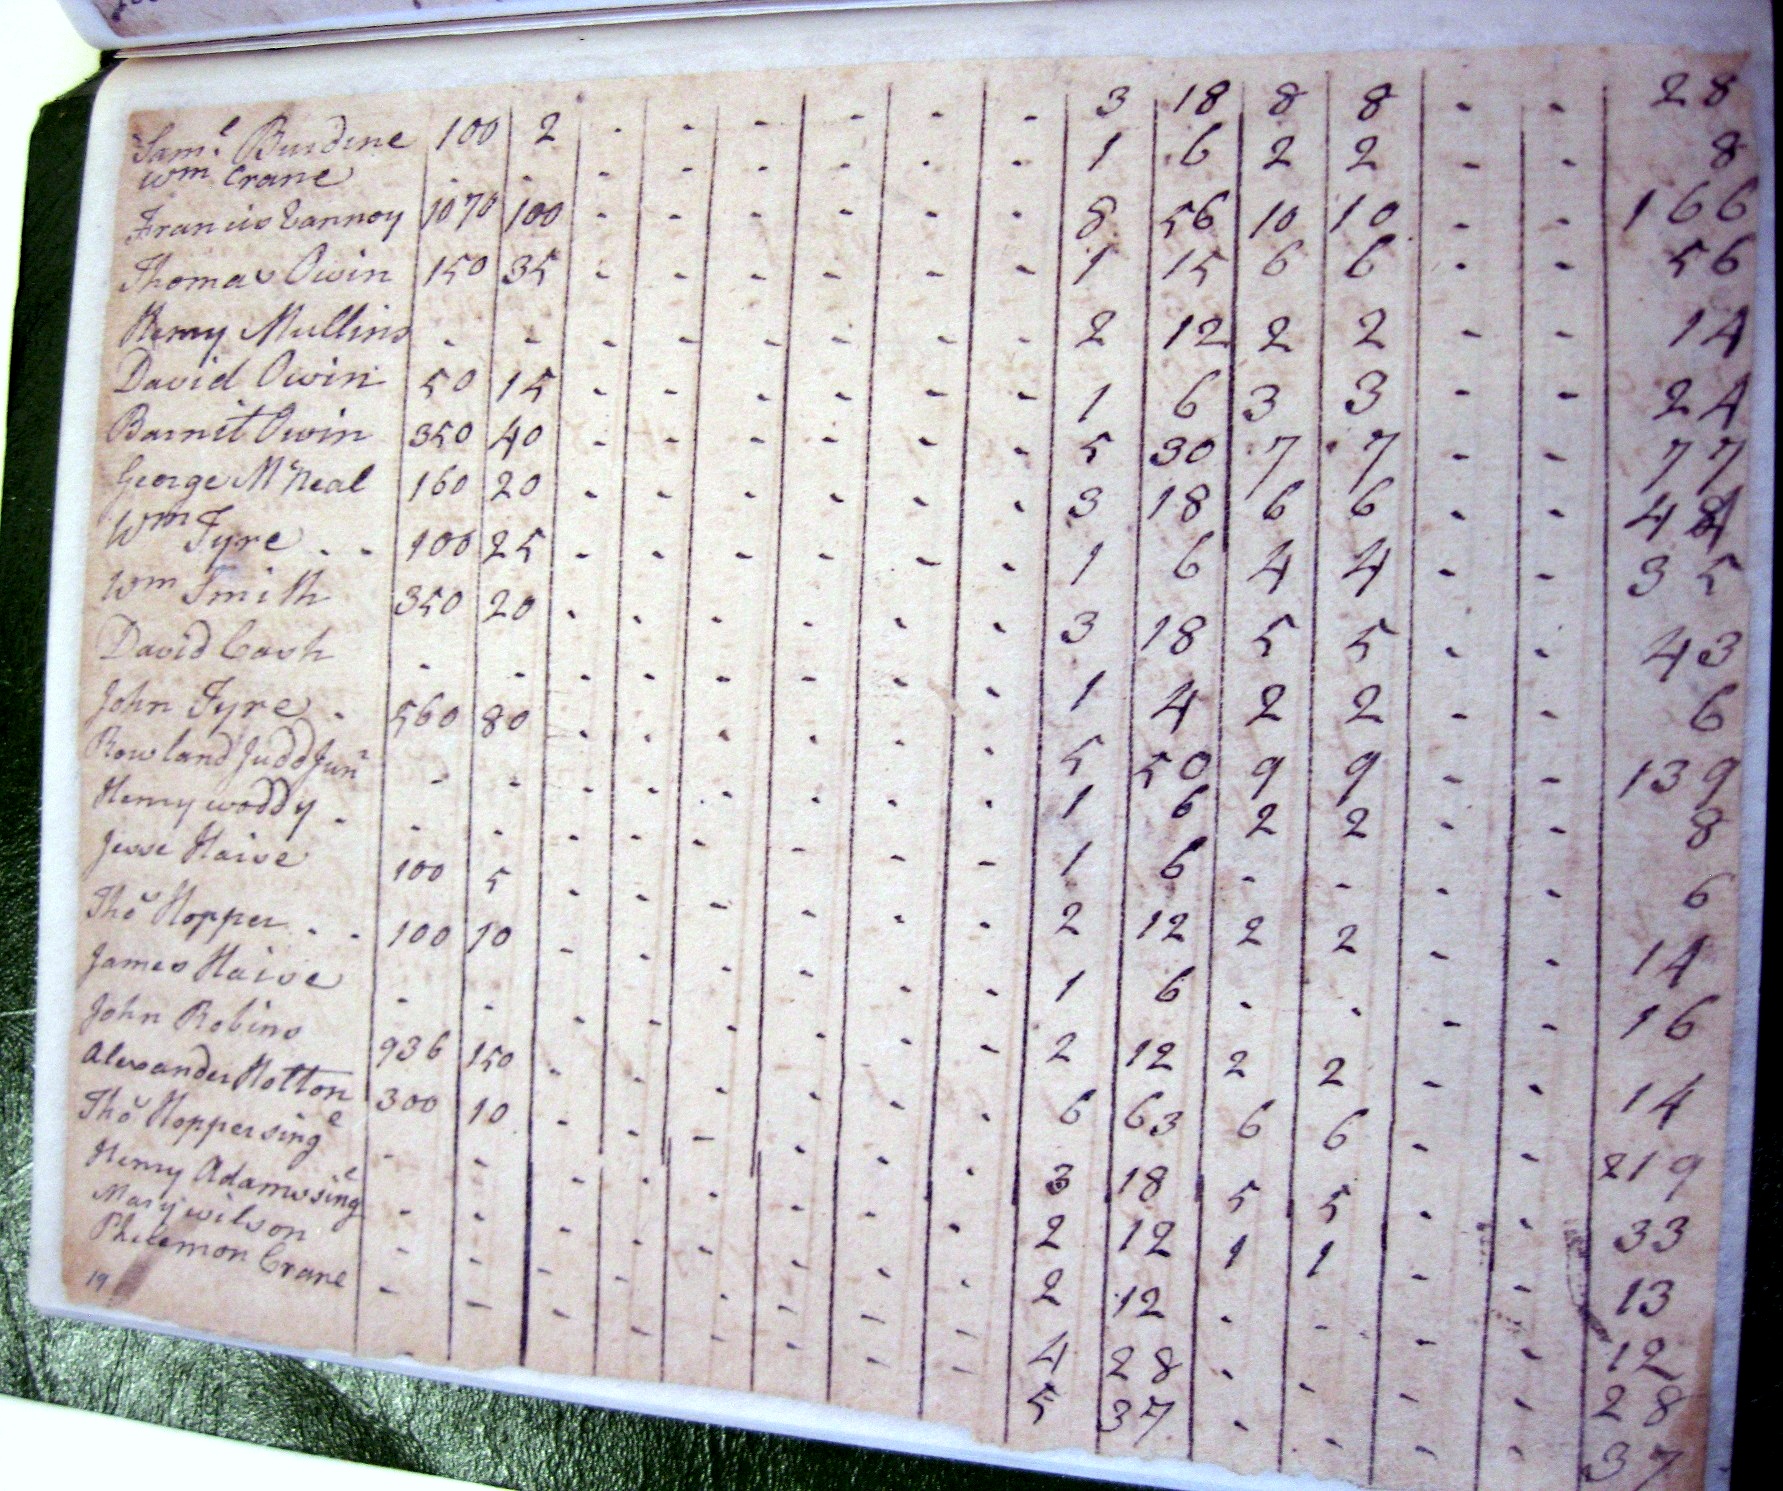 Saml Burdine 100 2 - - - - - - 3 18 8 8 - - 28
Wm Crane - - - - - - - - 1 6 2 2 - - 8
Francis Vannoy 1070 100 - - - - - - 8 56 10 10 - - 166
Thomas Owin 150 35 - - - - - - 1 15 6 6 - - 56
Henry Mullins - - - - - - - - 2 12 2 2 - - 14
David Owin 50 15 - - - - - - 1 6 3 3 - - 24
Barnit Owin 350 40 - - - - - - 5 30 7 7 - - 77
George McNeal 160 20 - - - - - - 3 18 6 6 - - 44
Wm Fyre . . 100 25 - - - - - - 1 6 4 4 - - 35
Wm Smith 350 20 - - - - - - 3 18 5 5 - - 43
David Cash - - - - - - - - 1 4 2 2 - - 6
John Fyre . 560 80 - - - - - - 5 50 9 9 - - 139
Rowland Judd Junr - - - - - - - - 1 6 2 2 - - 8
Henry woddy . - - - - - - - - 1 6 - - - - 6
Jesse Haise 100 5 - - - - - - 2 12 2 2 - - 14
Thos Hopper . . 100 10 - - - - - - 1 6 - - - - 16
James Haise - - - - - - - - 2 12 2 2 - - 14
John Robins 936 150 - - - - - - 6 63 6 6 - - 219
Alexander Hotton 300 10 - - - - - - 3 18 5 5 - - 33
Thos Hopper singl - - - - - - - - 2 12 1 1 - - 13
Henry Adams singl - - - - - - - - 2 12 - - - - 12
Mary wilson - - - - - - - - 4 28 - - - - 28
Philemon Crane - - - - - - - - 5 37 - - - - 37
19